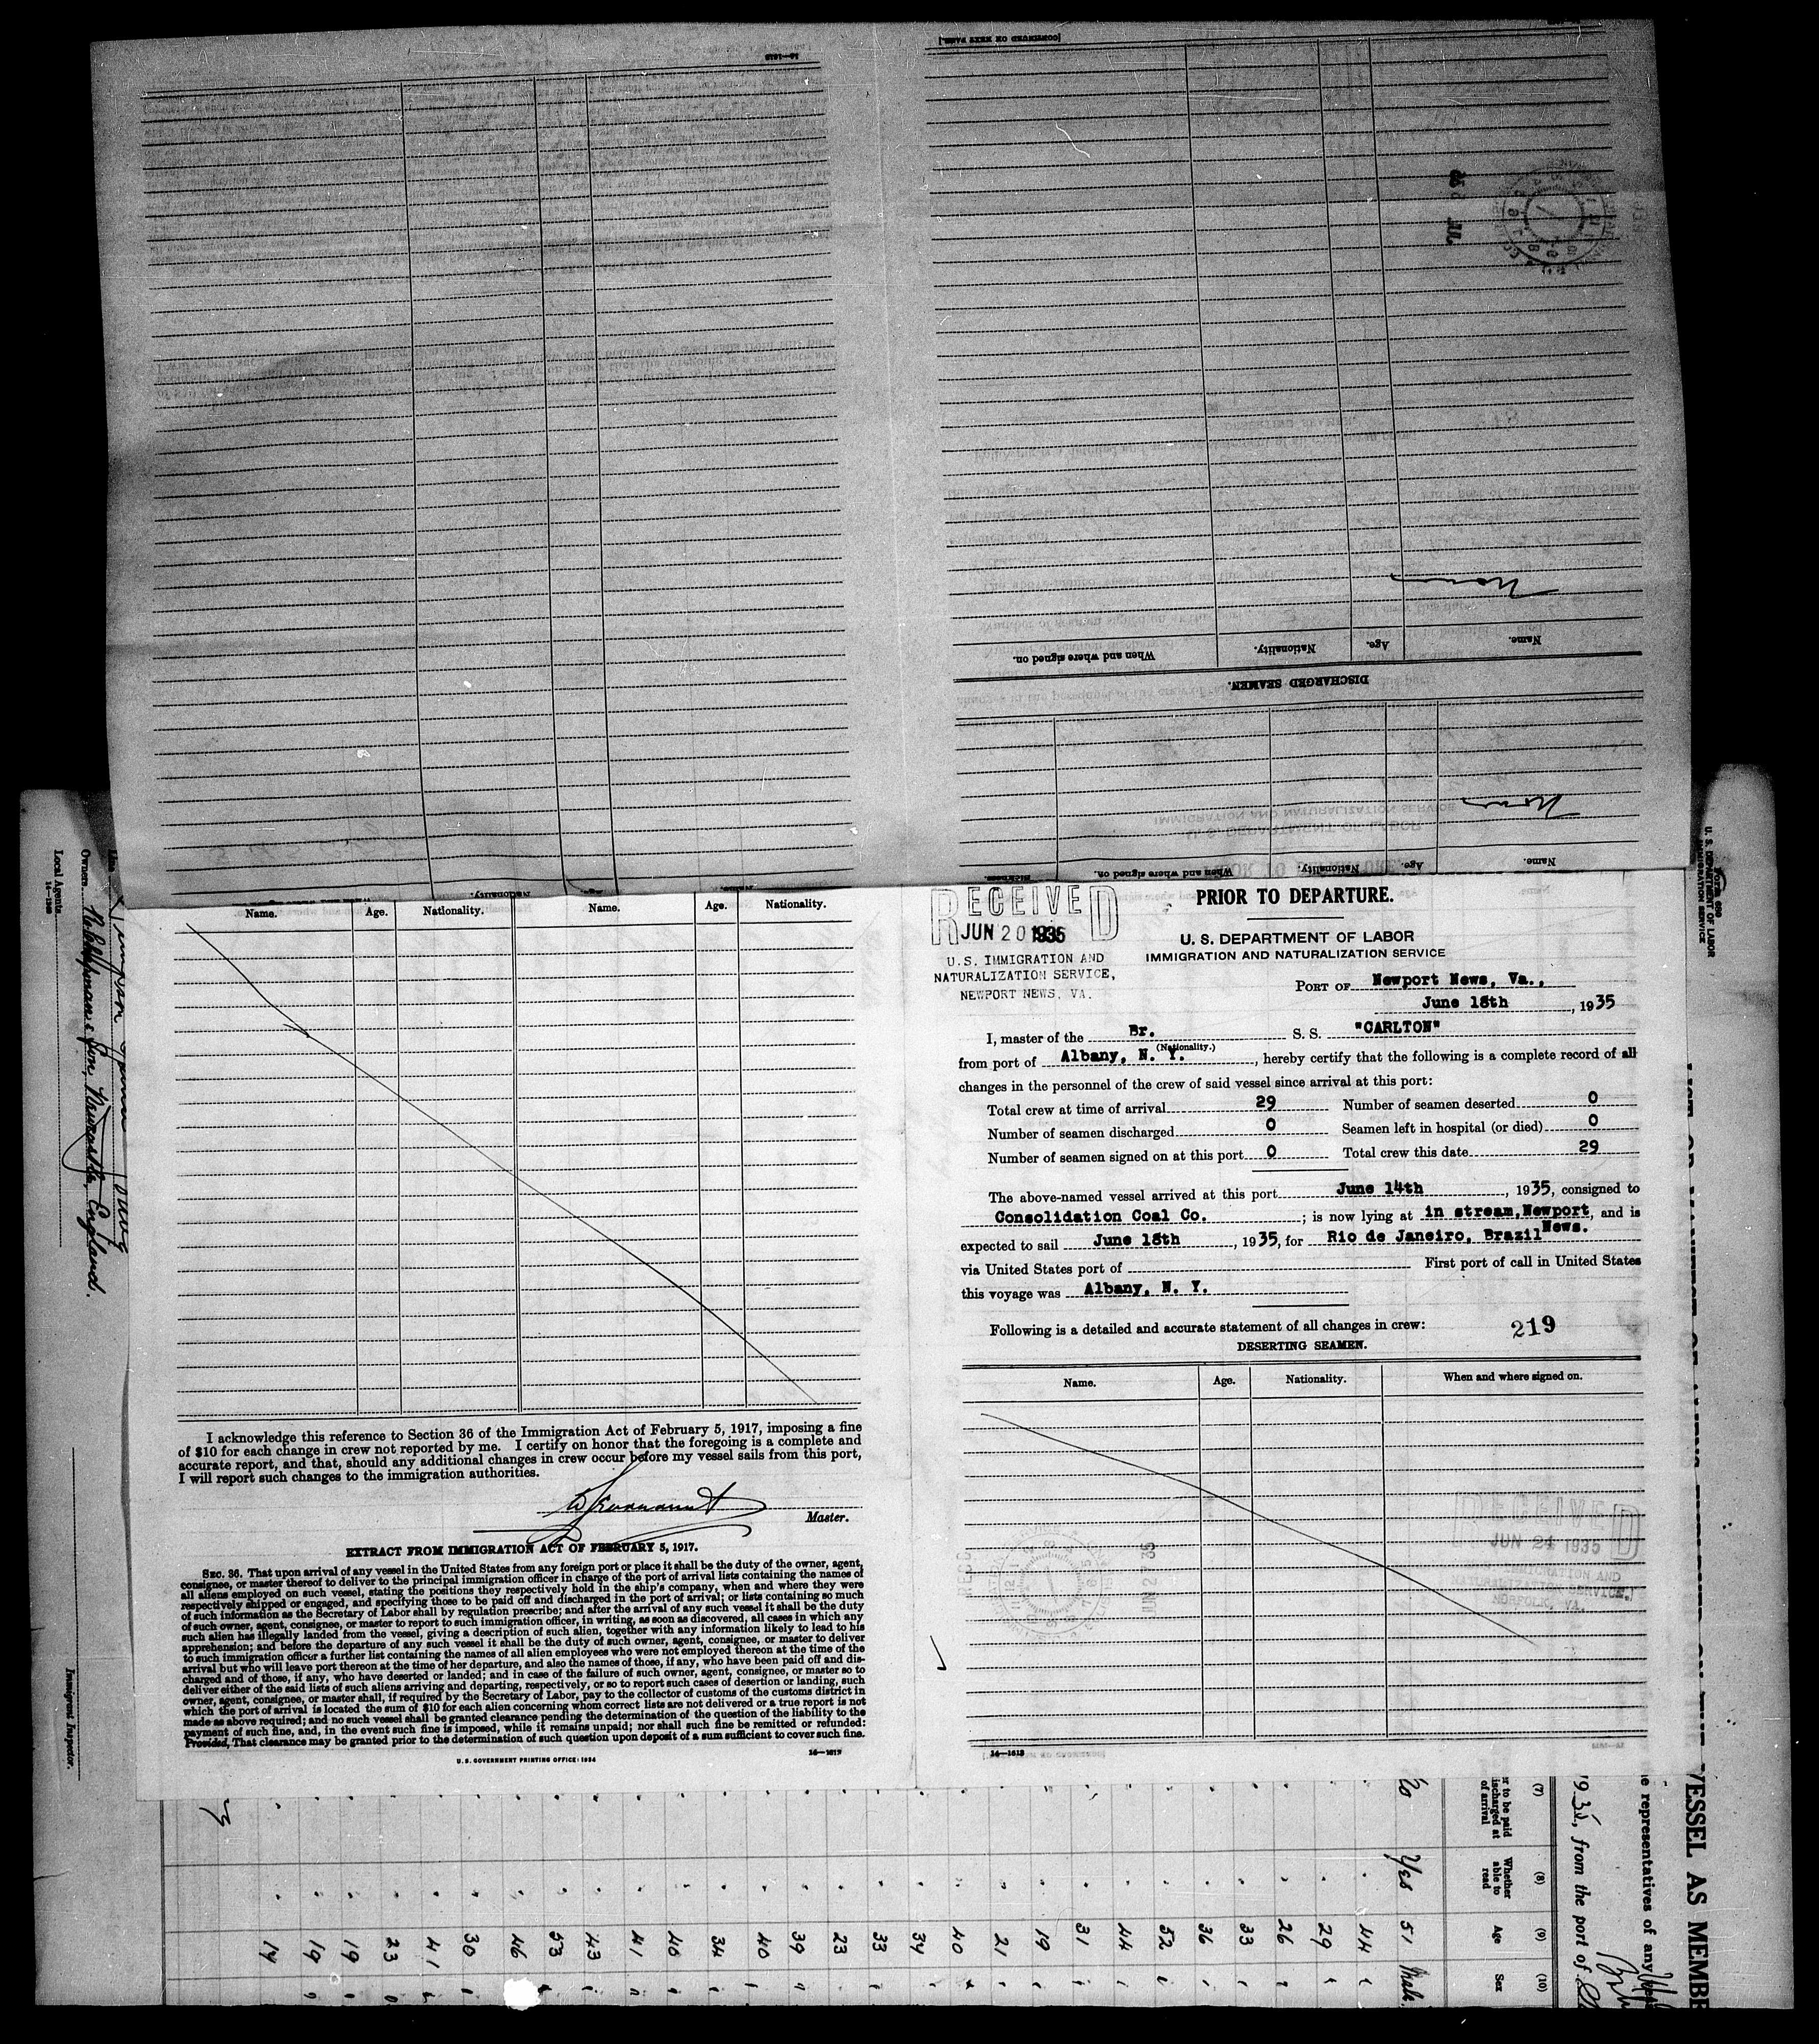 [CONTINUED ON NEXT PAGE.]
None
Name.
Age.
Nationality.
When and where signed on.
DISCHARGED SEAMEN.
None
Name.
Age.
Nationality.
When and where signed on.
Sickness.
Name. Age. Nationality. Name. Age. Nationality.
I acknowledge this reference to Section 36 of the Immigration Act of February 5, 1917, imposing a fine
of $10 for each change in crew not reported by me. I certify on honor that the foregoing is a complete and
accurate report, and that, should any additional changes in crew occur before my vessel sails from this port,
I will report such changes to the immigration authorities.
Master.
EXTRACT FROM IMMIGRATION ACT OF FEBRUARY 5, 1917.
SEC. 36. That upon arrival of any vessel in the United States from any foreign port or place it shall be the duty of the owner, agent,
consignee, or master thereof to deliver to the principal immigration officer in charge of the port of arrival lists containing the names of
all aliens employed on such vessel, stating the positions they respectively hold in the ship's company, when and where they were
respectively shipped or engaged, and specifying those to be paid off and discharged in the port of arrival; or lists containing so much
of such information as the Secretary of Labor shall by regulation prescribe; and after the arrival of any such vessel it shall be the duty
of such owner, agent, consignee, or master to report to such immigration officer, in writing, as soon as discovered, all cases in which any
such alien has illegally landed from the vessel, giving a description of such alien, together with any information likely to lead to his
apprehension; and before the departure of any such vessel it shall be the duty of such owner, agent, consignee, or master to deliver
to such immigration officer a further list containing the names of all alien employees who were not employed thereon at the time of the
arrival but who will leave port thereon at the time of her departure, and also the names of those, if any, who have been paid off and dis-
charged and of those, if any, who have deserted or landed; and in case of the failure of such owner, agent, consignee, or master so to
deliver either of the said lists of such aliens arriving and departing, respectively, or so to report such cases of desertion or landing, such
owner, agent, consignee, or master shall, if required by the Secretary of Labor, pay to the collector of customs of the customs district in
which the port of arrival is located the sum of $10 for each alien concerning whom correct lists are not delivered or a true report is not
made as above required; and no such vessel shall be granted clearance pending the determination of the question of the liability to the
payment of such fine, and, in the event such fine is imposed, while it remains unpaid; nor shall such fine be remitted or refunded:
Provided, That clearance may be granted prior to the determination of such question upon deposit of a sum sufficient to cover such fine.
U. S. GOVERNMENT PRINTING OFFICE: 1934
RECEIVED
JUN 20 1935
U.S. IMMIGRATION AND
NATURALIZATION SERVICE,
NEWPORT NEWS, VA.
PRIOR TO DEPARTURE.
U. S. DEPARTMENT OF LABOR
IMMIGRATION AND NATURALIZATION SERVICE
PORT OF Newport News, Va.,
June 18th, 1935
I, master of the Br. S. S. "CARLTON"
(Nationality.)
from port of Albany, N. Y., hereby certify that the following is a complete record of all
changes in the personnel of the crew of said vessel since arrival at this port:
Total crew at time of arrival 29 Number of seamen deserted 0
Number of seamen discharged 0 Seamen left in hospital (or died) 0
Number of seamen signed on at this port 0 Total crew this date 29
The above-named vessel arrived at this port June 14th, 1935, consigned to
Consolidation Coal Co.; is now lying at in stream, Newport News., and is
expected to sail June 18th, 1935, for Rio de Janeiro, Brazil
via United States port of First port of call in United States
this voyage was Albany, N. Y.
Following is a detailed and accurate statement of all changes in crew: 219
DESERTING SEAMEN.
Name. Age. Nationality. When and where signed on.
RECEIVED
JUN 24 1935
NORFOLK, VA.
16—1613
Owners R. Chapman & Son, Newcastle, England.
Local Agents
Immigrant Inspector.
Form 689
U. S. DEPARTMENT OF LABOR
IMMIGRATION SERVICE
VESSEL AS MEMBE
e representatives of any
1935, from the port of
(7) (8) (9) (10)
Whether able to read
Age
Sex
Yes 51 Male
44
29
26
33
36
52
44
31
19
21
40
34
33
23
39
40
34
40
41
43
53
46
30
41
23
19
19
14